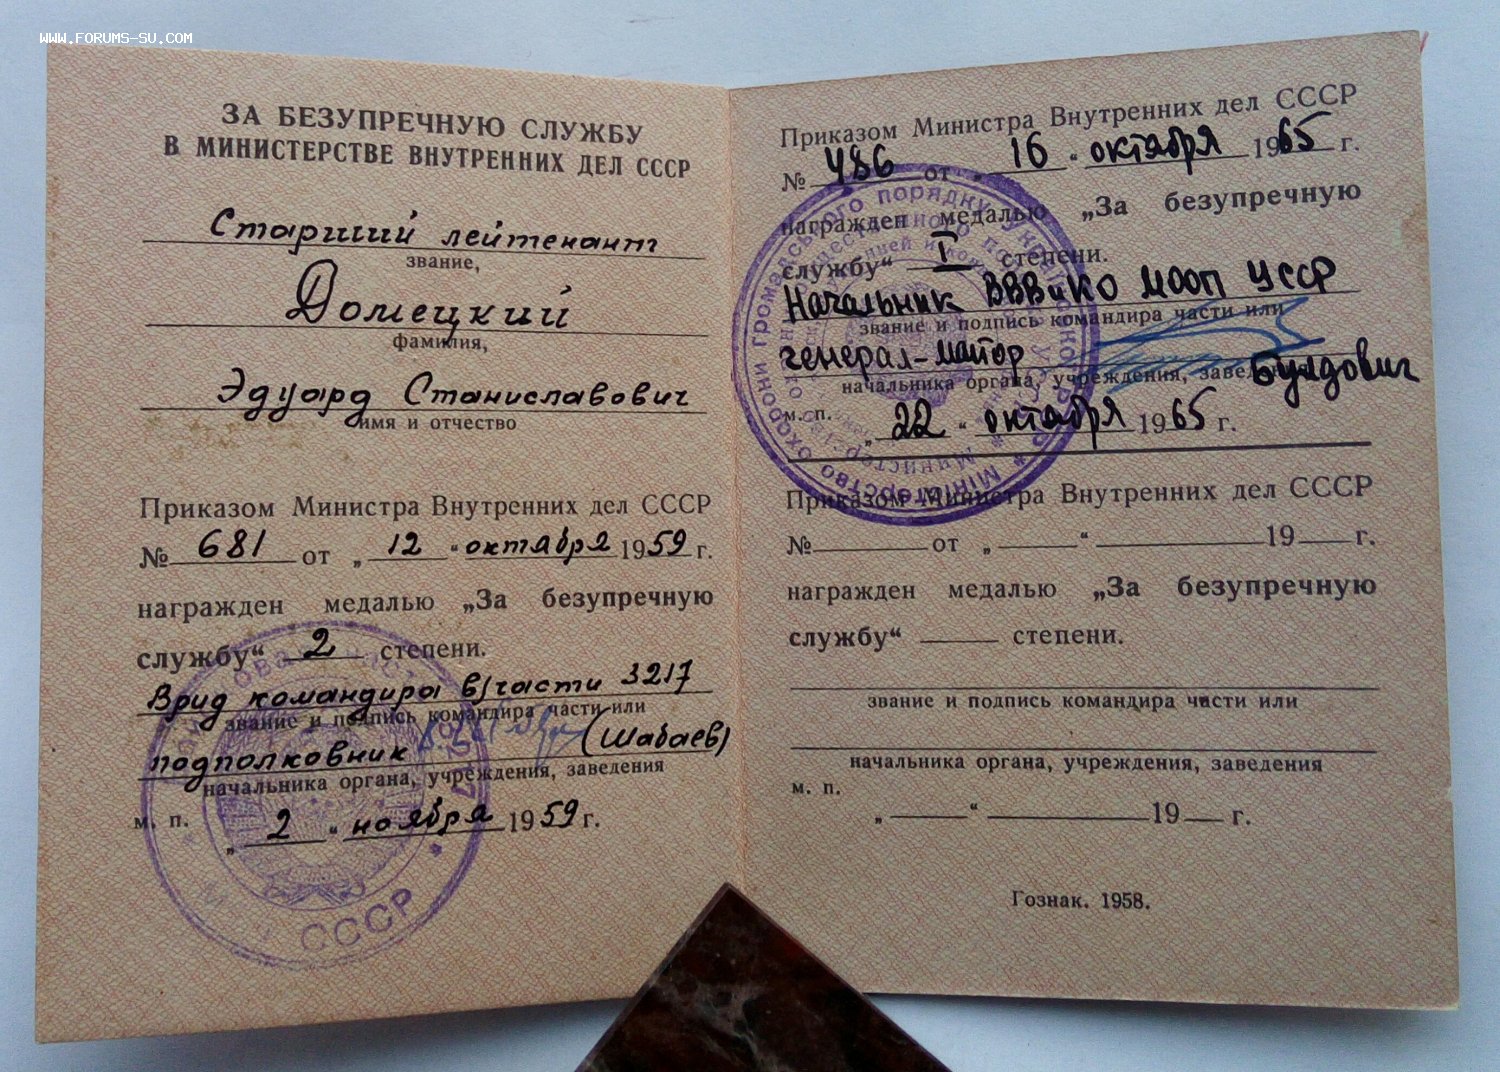 WWW.FORUMS-SU.COM
ЗА БЕЗУПРЕЧНУЮ СЛУЖБУ
В МИНИСТЕРСТВЕ ВНУТРЕННИХ ДЕЛ СССР
Старший лейтенант
звание,
Домецкий
фамилия,
Эдуард Станиславович
имя и отчество
Приказом Министра Внутренних дел СССР
№ 681 от „ 12 “ октября 1959 г.
награжден медалью „За безупречную
службу“ 2 степени.
Врид командира в/части 3217
звание и подпись командира части или
подполковник (Шабаев)
начальника органа, учреждения, заведения
м. п.
„ 2 “ ноября 1959 г.
СССР
Приказом Министра Внутренних дел СССР
№ 486 от „ 16 “ октября 1965 г.
награжден медалью „За безупречную
службу“ I степени.
Начальник ВВВиКО МООП УССР
звание и подпись командира части или
генерал-майор Булдович
начальника органа, учреждения, заведения
м. п.
„ 22 “ октября 1965 г.
Міністерство охорони громадського порядку Української РСР
Приказом Министра Внутренних дел СССР
№ от „ “ 19 г.
награжден медалью „За безупречную
службу“ степени.
звание и подпись командира части или
начальника органа, учреждения, заведения
м. п.
„ “ 19 г.
Гознак. 1958.